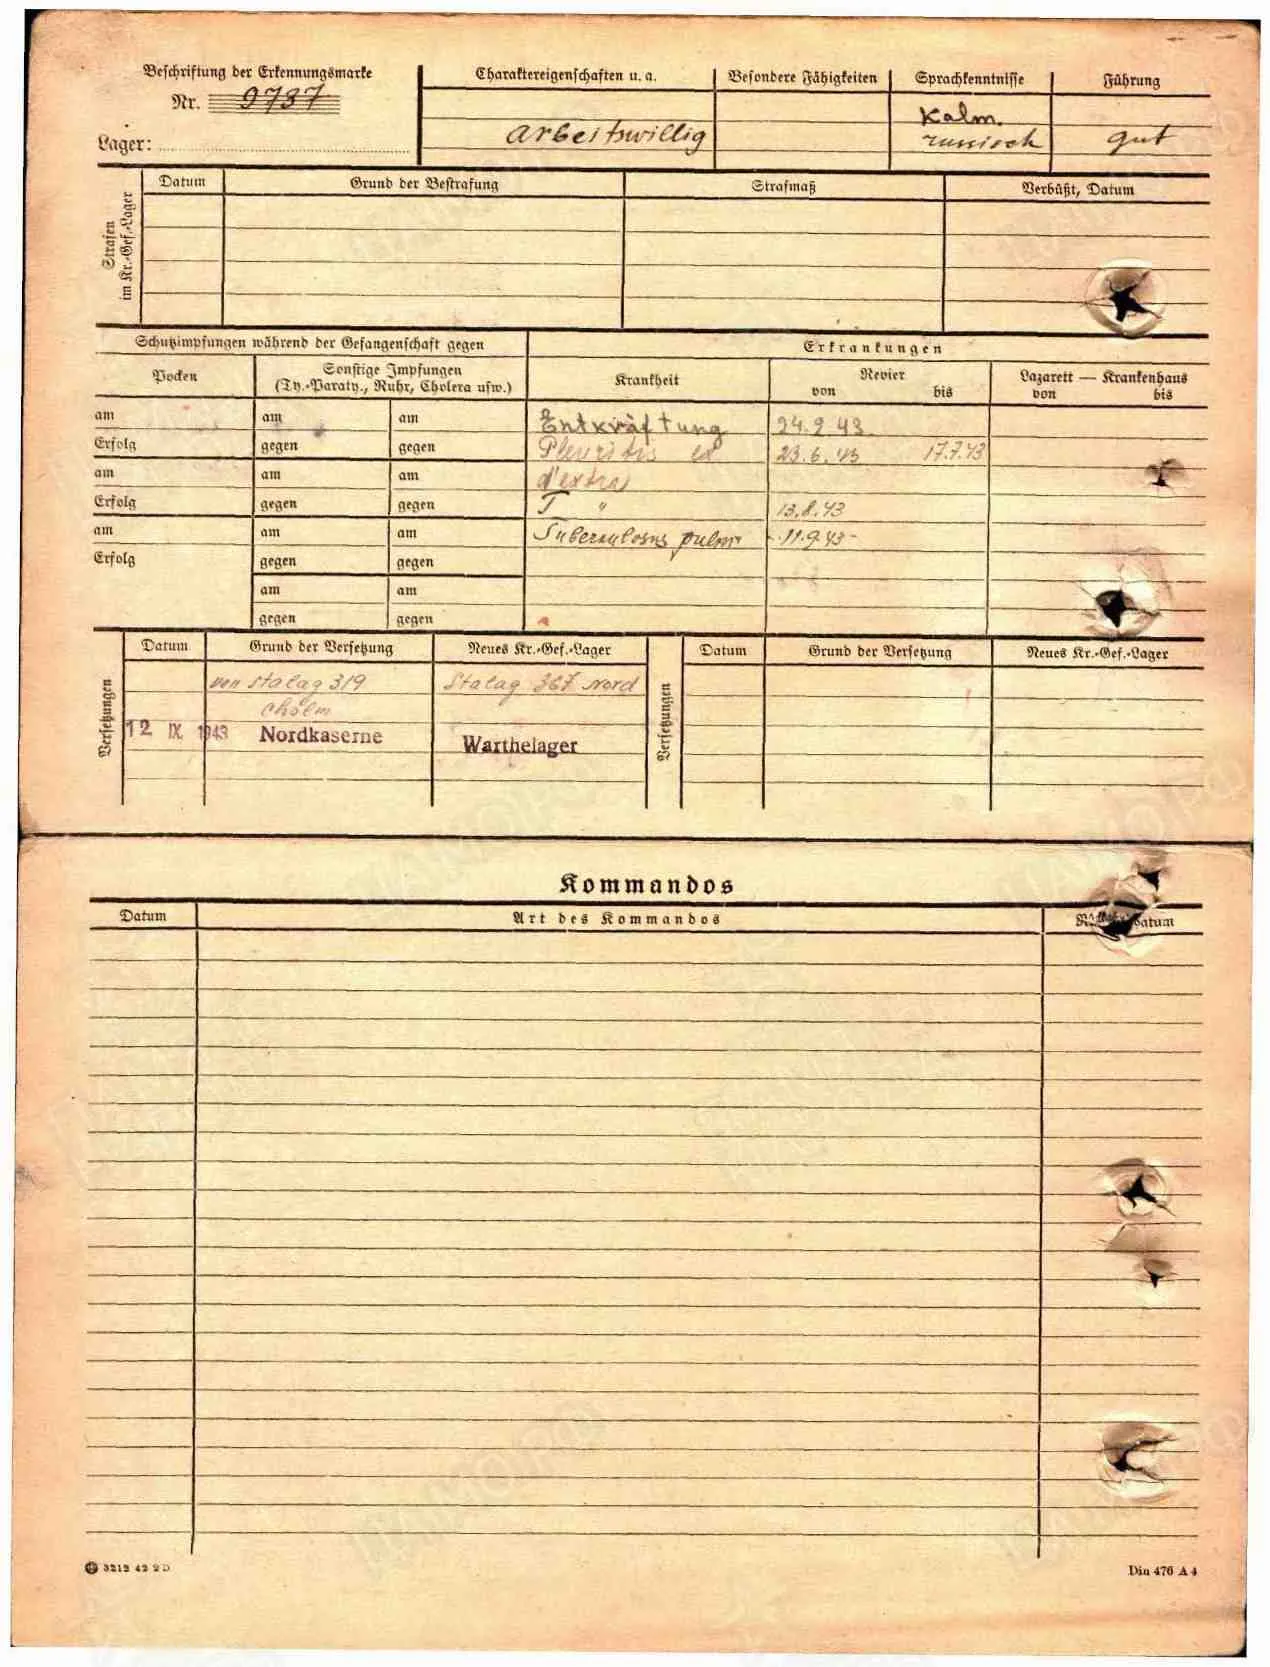 Beschriftung der Erkennungsmarke
Nr. 9737
Lager:
Charaktereigenschaften u. a.
arbeitswillig
Besondere Fähigkeiten
Sprachkenntnisse
Kalm.
russisch
Führung
gut
Strafen im Kr.-Gef.-Lager
Datum Grund der Bestrafung Strafmaß Verbüßt, Datum
Schutzimpfungen während der Gefangenschaft gegen
Erkrankungen
Pocken
Sonstige Impfungen
(Ty.-Paraty., Ruhr, Cholera usw.)
Krankheit
Revier
von bis
Lazarett — Krankenhaus
von bis
am am am Entkräftung 24.2 43.
Erfolg gegen gegen Pleuritis ex 23.6.43 17.7.43
am am am d'extra
Erfolg gegen gegen T " 13.8.43
am am am Tuberculosus pulm -11.9.43-
Erfolg gegen gegen
am am
gegen gegen
Versetzungen
Datum Grund der Versetzung Neues Kr.-Gef.-Lager
von Stalag 319 Stalag 367 Nord
Cholm
12 IX. 1943 Nordkaserne Warthelager
Versetzungen
Datum Grund der Versetzung Neues Kr.-Gef.-Lager
Kommandos
Datum Art des Kommandos datum
3212 42 2 D
Din 476 A 4